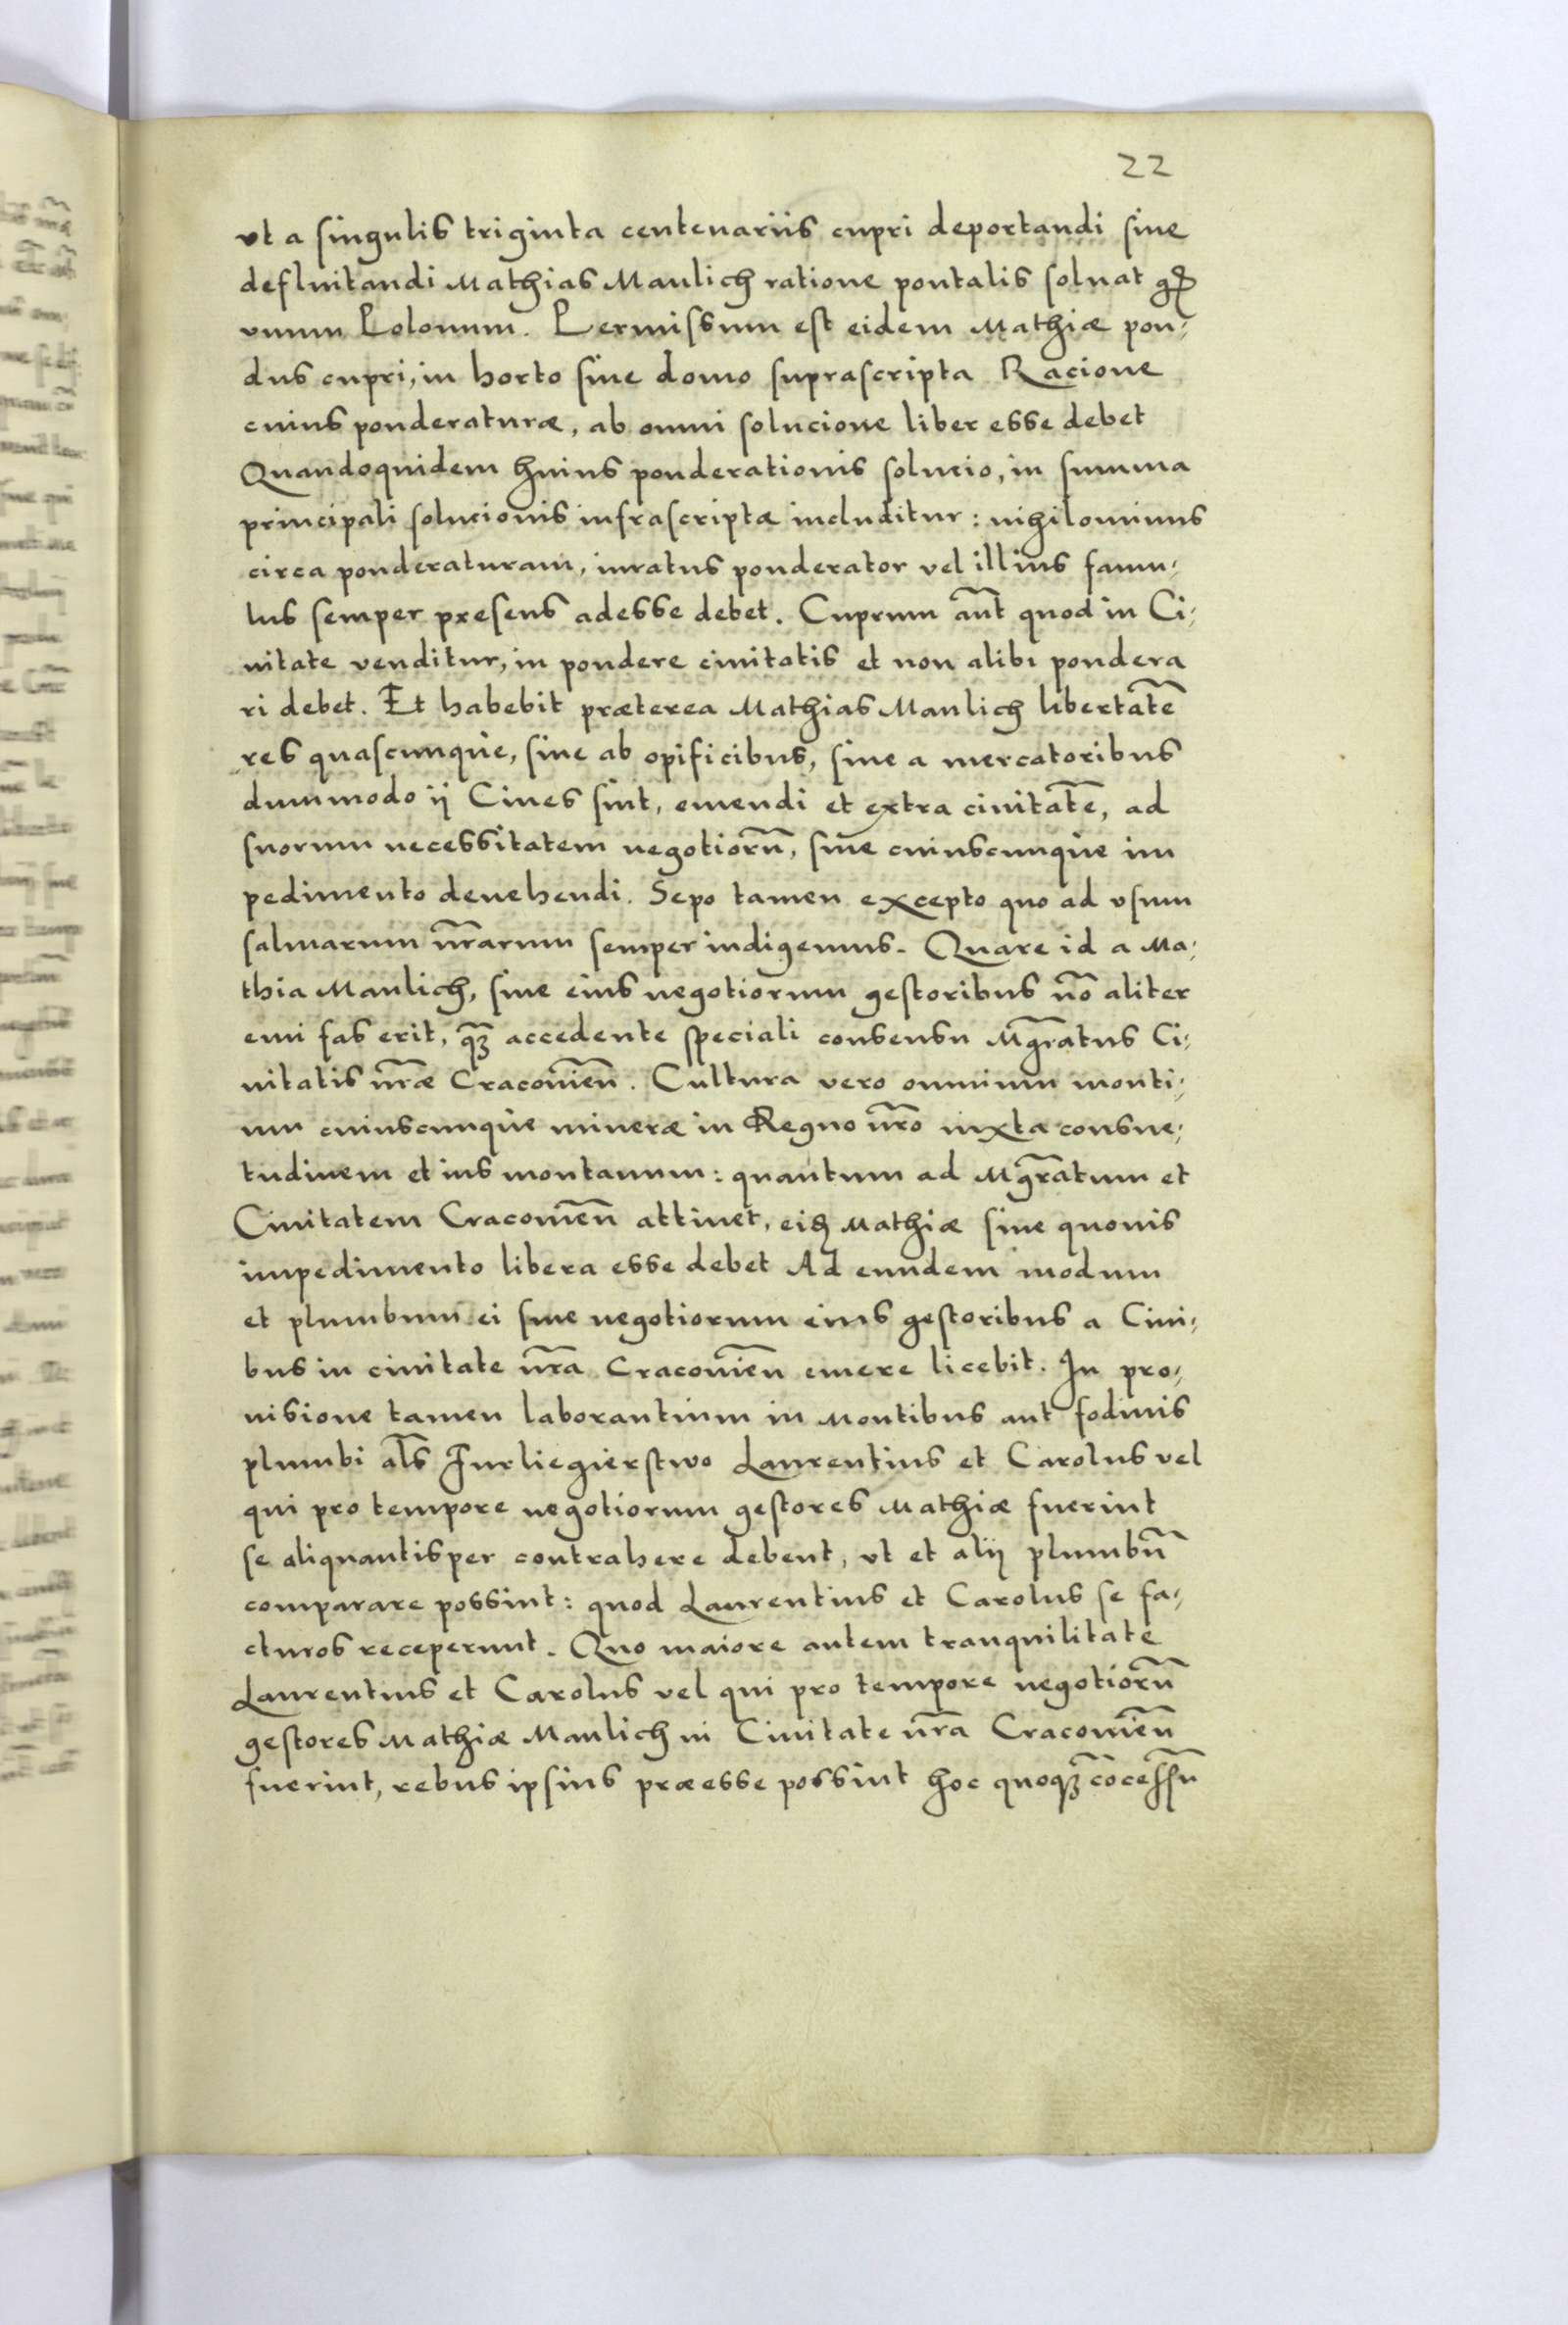 22
vt a singulis triginta centenariis cupri deportandi siue
defluitandi Mathias Manlich ratione pontalis soluat gr̄
vnum Polonum. Permissum est eidem Mathiæ pon-
dus cupri, in horto siue domo suprascripta Racione
cuius ponderaturæ, ab omni solucione liber esse debet
Quandoquidem huius ponderationis solucio, in summa
principali solucionis infrascriptæ includitur: nihilominus
circa ponderaturam, iuratus ponderator vel illius famu-
lus semper presens adesse debet. Cuprum aūt quod in Ci-
uitate venditur, in pondere ciuitatis et non alibi pondera
ri debet. Et habebit præterea Mathias Manlich libertatē
res quascunque, siue ab opificibus, siue a mercatoribus
dummodo ij Ciues sint, emendi et extra ciuitatē, ad
suorum necessitatem negotiorū, sine cuiuscunque im
pedimento deuehendi. Sepo tamen excepto quo ad vsum
salinarum nr̄arum semper indigemus. Quare id a Ma-
thia Manlich, siue eius negotiorum gestoribus nō aliter
emi fas erit, q̃ȝ accedente speciali consensu Mgr̄atus Ci-
uitatis nr̄æ Cracouień. Cultura vero omnium monti-
um cuiuscunque mineræ in Regno nr̄o iuxta consue-
tudinem et ius montanum: quantum ad Mgr̄atum et
Ciuitatem Cracouień attinet, eiꝫ Mathiæ sine quouis
impedimento libera esse debet Ad eundem modum
et plumbum ei siue negotiorum eius gestoribus a Ciui-
bus in ciuitate nr̄a Cracouień emere licebit. In pro-
uisione tamen laborantium in Montibus aut fodinis
plumbi al̄s Furliegierstwo Laurentius et Carolus vel
qui pro tempore negotiorum gestores Mathiæ fuerint
se aliquantisper contrahere debent, vt et alij plumbū
comparare possint: quod Laurentius et Carolus se fa-
cturos receperunt. Quo maiore autem tranquilitate
Laurentius et Carolus vel qui pro tempore negotiorū
gestores Mathiæ Manlich in Ciuitate nr̄a Cracouień
fuerint, rebus ipsius præesse possint hoc quoqȝ cōcessū